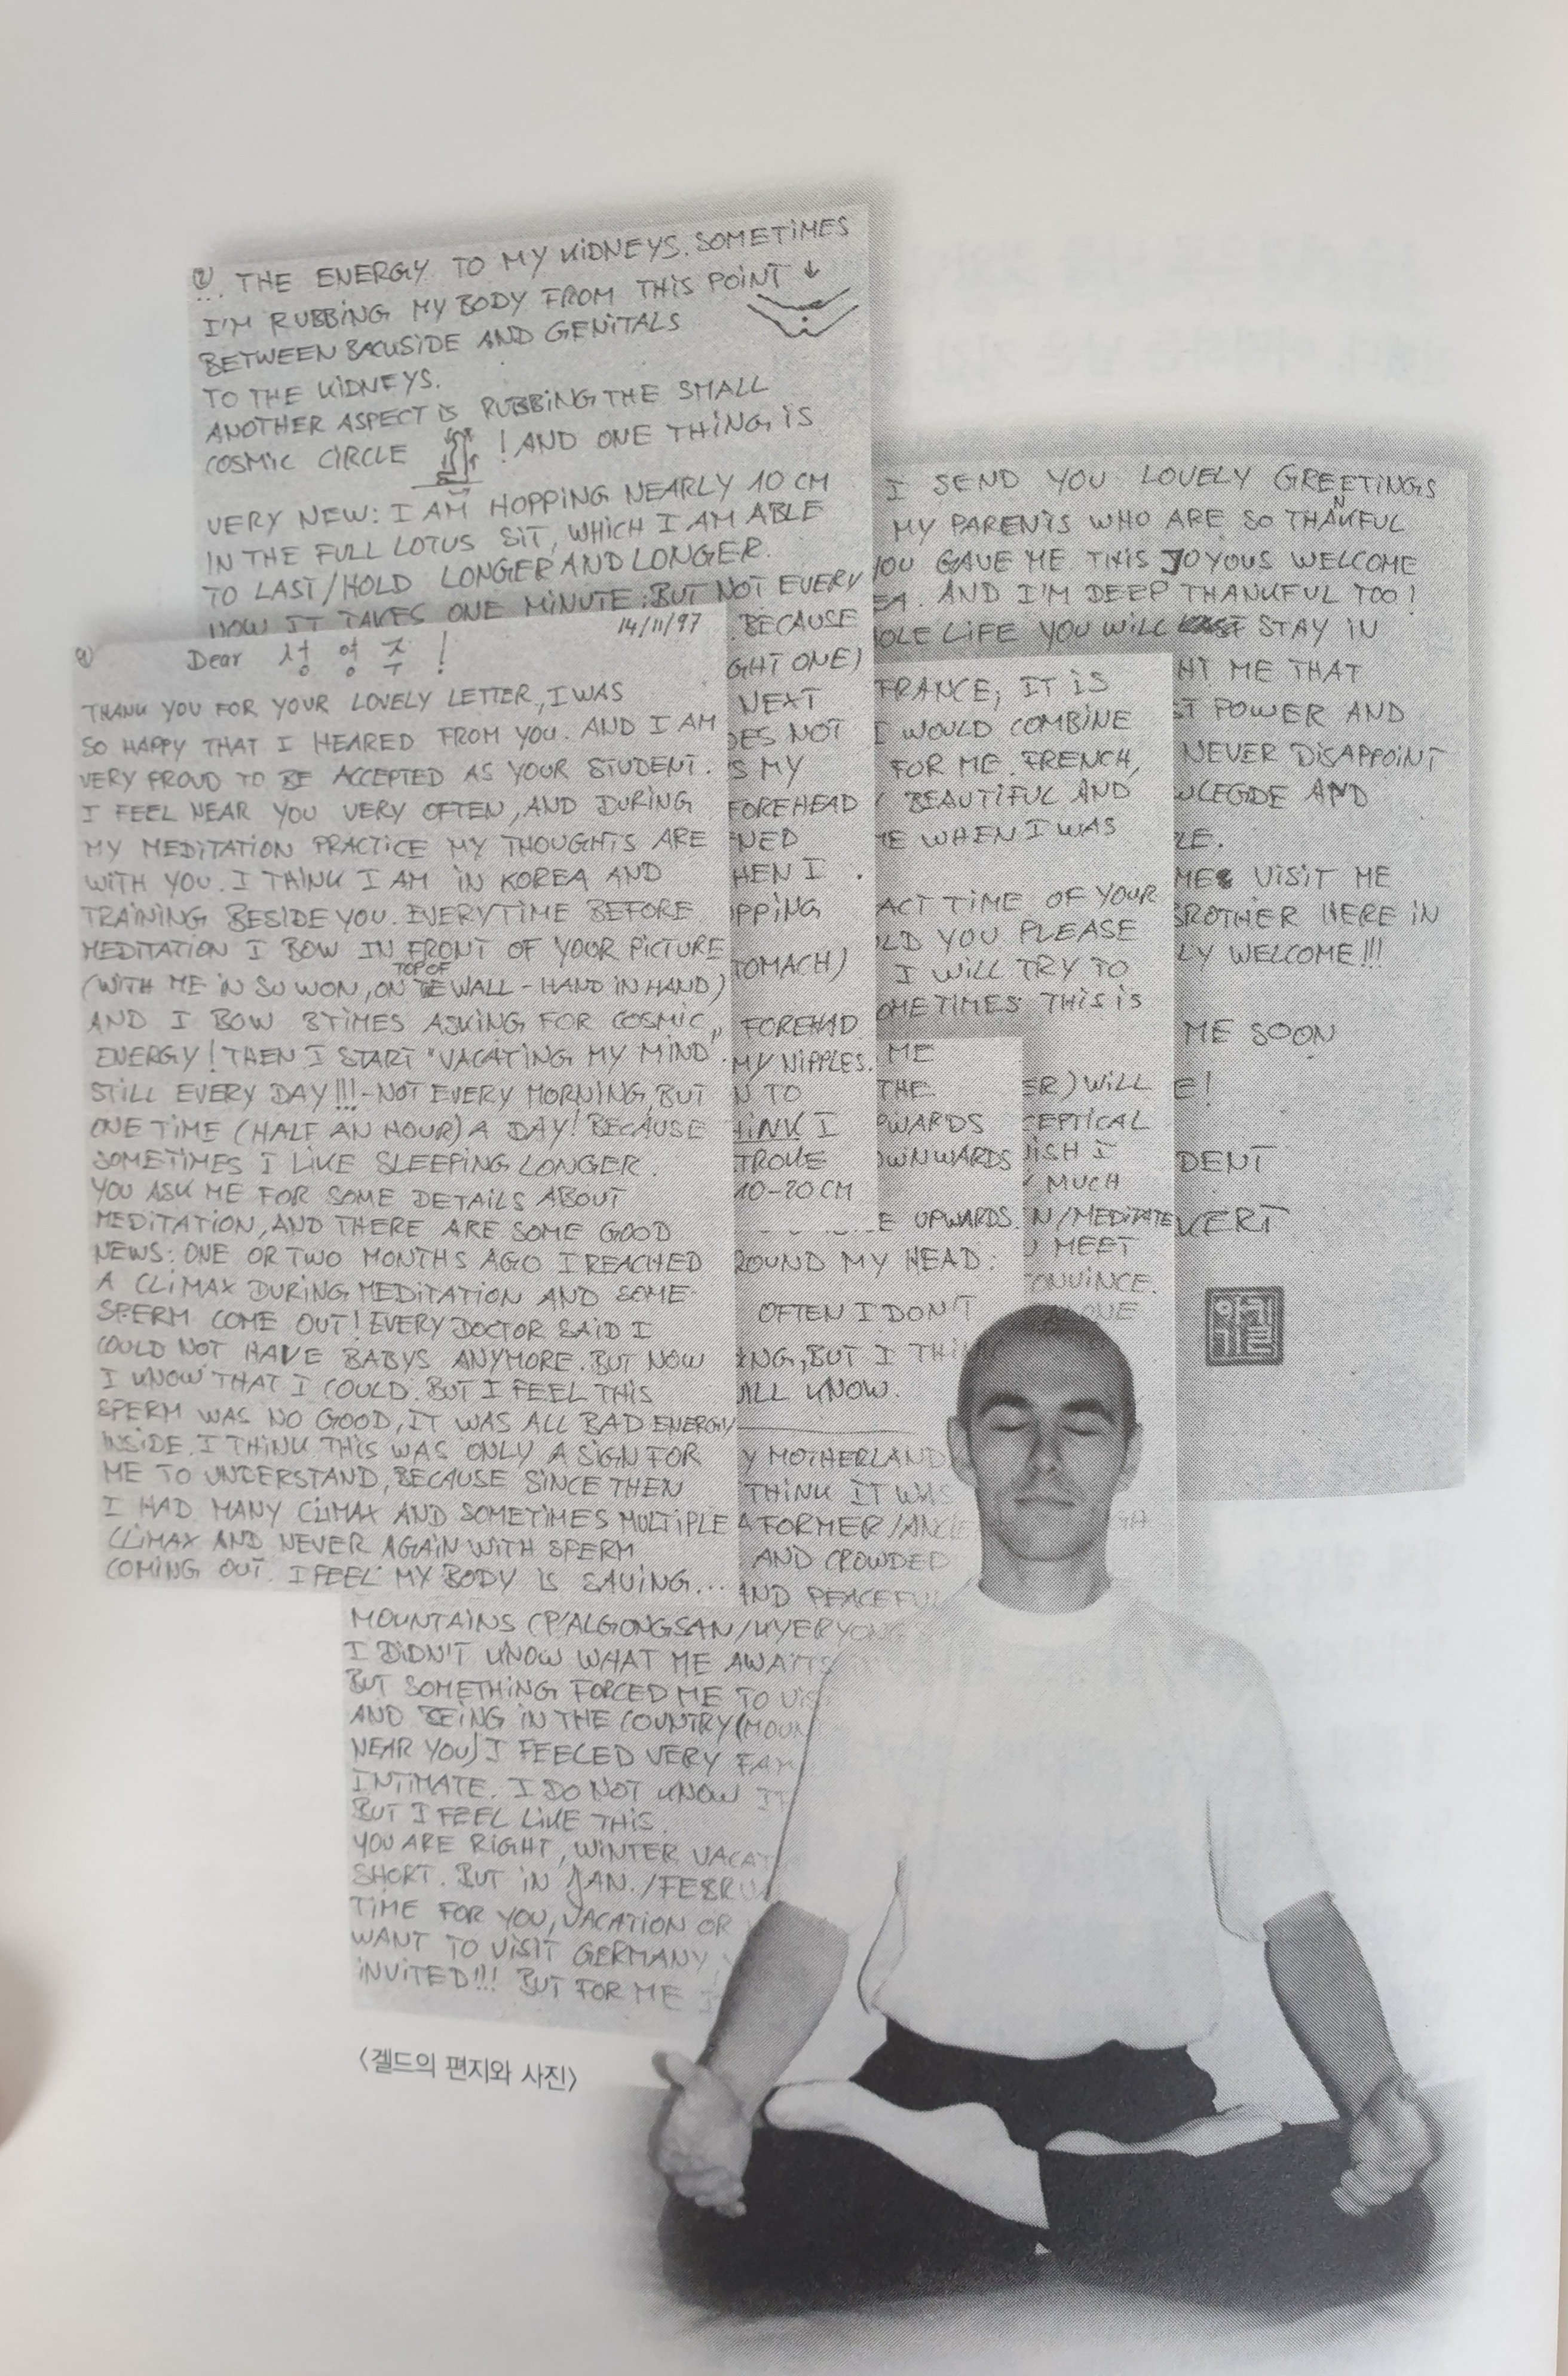 ② ... THE ENERGY TO MY KIDNEYS. SOMETIMES
I'M RUBBING MY BODY FROM THIS POINT ↓
BETWEEN BACKSIDE AND GENITALS
TO THE KIDNEYS.
ANOTHER ASPECT IS RUBBING THE SMALL
COSMIC CIRCLE ! AND ONE THING IS
VERY NEW: I AM HOPPING NEARLY 10 CM
IN THE FULL LOTUS SIT, WHICH I AM ABLE
TO LAST/HOLD LONGER AND LONGER.
NOW IT TAKES ONE MINUTE; BUT NOT EVERY
BECAUSE
GHT ONE)
NEXT
OES NOT
S MY
FOREHEAD
NED
HEN I
PPING
TOMACH)
FOREHAD
MY NIPPLES.
N TO
HINK I
TROKE
10-20 CM
14/11/97
Dear 성영주!
THANK YOU FOR YOUR LOVELY LETTER, I WAS
SO HAPPY THAT I HEARED FROM YOU. AND I AM
VERY PROUD TO BE ACCEPTED AS YOUR STUDENT.
I FEEL NEAR YOU VERY OFTEN, AND DURING
MY MEDITATION PRACTICE MY THOUGHTS ARE
WITH YOU. I THINK I AM IN KOREA AND
TRAINING BESIDE YOU. EVERYTIME BEFORE
MEDITATION I BOW IN FRONT OF YOUR PICTURE
(WITH ME IN SU WON, ON TOP OF TE WALL - HAND IN HAND)
AND I BOW 3TIMES ASKING FOR COSMIC
ENERGY! THEN I START "VACATING MY MIND".
STILL EVERY DAY!!! - NOT EVERY MORNING, BUT
ONE TIME (HALF AN HOUR) A DAY! BECAUSE
SOMETIMES I LIKE SLEEPING LONGER.
YOU ASK ME FOR SOME DETAILS ABOUT
MEDITATION, AND THERE ARE SOME GOOD
NEWS: ONE OR TWO MONTHS AGO I REACHED
A CLIMAX DURING MEDITATION AND SOME
SPERM COME OUT! EVERY DOCTOR SAID I
COULD NOT HAVE BABYS ANYMORE. BUT NOW
I KNOW THAT I COULD. BUT I FEEL THIS
SPERM WAS NO GOOD, IT WAS ALL BAD ENERGY
INSIDE. I THINK THIS WAS ONLY A SIGN FOR
ME TO UNDERSTAND, BECAUSE SINCE THEN
I HAD MANY CLIMAX AND SOMETIMES MULTIPLE
CLIMAX AND NEVER AGAIN WITH SPERM
COMING OUT. I FEEL MY BODY IS SAVING...
ME
THE
PWARDS
OWNWARDS
E UPWARDS.
ROUND MY HEAD:
OFTEN I DON'T
ING, BUT I THIN
ALL KNOW.
Y MOTHERLAND
THINK IT WAS
A FORMER/
AND CROWDED
AND PEACEFUL
MOUNTAINS (P'ALGONGSAN/KYERYONG
I DIDN'T KNOW WHAT ME AWAITS
BUT SOMETHING FORCED ME TO VIS
AND BEING IN THE COUNTRY (MOUN
NEAR YOU) I FEELED VERY FAM
INTIMATE. I DO NOT KNOW IF
BUT I FEEL LIKE THIS.
YOU ARE RIGHT, WINTER VACAT
SHORT. BUT IN JAN./FEBRU
TIME FOR YOU, VACATION OR
WANT TO VISIT GERMANY
INVITED!!! BUT FOR ME I
FRANCE, IT IS
I WOULD COMBINE
FOR ME. FRENCH,
BEAUTIFUL AND
E WHEN I WAS
ACT TIME OF YOUR
LD YOU PLEASE
I WILL TRY TO
OMETIMES THIS IS
ER) WILL
CEPTICAL
ISH I
MUCH
N/MEDITATE
U MEET
ONVINCE.
ONE
I SEND YOU LOVELY GREETINGS
MY PARENTS WHO ARE SO THANKFUL
YOU GAVE ME THIS JOYOUS WELCOME
EA. AND I'M DEEP THANKFUL TOO!
OLE LIFE YOU WILL STAY IN
HT ME THAT
ST POWER AND
NEVER DISAPPOINT
WLEGDE AND
LE.
ME VISIT ME
BROTHER HERE IN
LY WELCOME!!!
ME SOON
E!
DENT
VERT
<겔드의 편지와 사진>